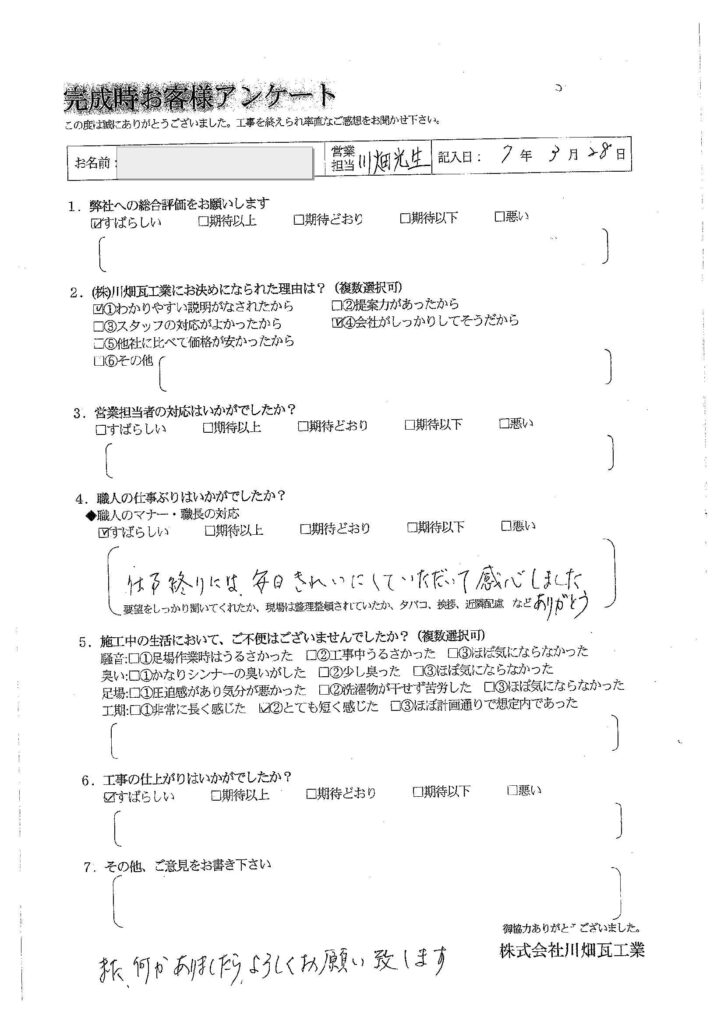 完成時お客様アンケート
この度は誠にありがとうございました。工事を終えられ率直なご感想をお聞かせ下さい。
お名前: 営業担当 川畑光生 記入日: 7 年 3 月 28 日
1．弊社への総合評価をお願いします
☑すばらしい □期待以上 □期待どおり □期待以下 □悪い
2．(株)川畑瓦工業にお決めになられた理由は？（複数選択可）
☑①わかりやすい説明がなされたから □②提案力があったから
□③スタッフの対応がよかったから ☑④会社がしっかりしてそうだから
□⑤他社に比べて価格が安かったから
□⑥その他
3．営業担当者の対応はいかがでしたか？
□すばらしい □期待以上 □期待どおり □期待以下 □悪い
4．職人の仕事ぶりはいかがでしたか？
◆職人のマナー・職長の対応
☑すばらしい □期待以上 □期待どおり □期待以下 □悪い
仕事終りには、毎日きれいにしていただいて感心しました
要望をしっかり聞いてくれたか、現場は整理整頓されていたか、タバコ、挨拶、近隣配慮 など ありがとう
5．施工中の生活において、ご不便はございませんでしたか？（複数選択可）
騒音:□①足場作業時はうるさかった □②工事中うるさかった □③ほぼ気にならなかった
臭い:□①かなりシンナーの臭いがした □②少し臭った □③ほぼ気にならなかった
足場:□①圧迫感があり気分が悪かった □②洗濯物が干せず苦労した □③ほぼ気にならなかった
工期:□①非常に長く感じた ☑②とても短く感じた □③ほぼ計画通りで想定内であった
6．工事の仕上がりはいかがでしたか？
☑すばらしい □期待以上 □期待どおり □期待以下 □悪い
7．その他、ご意見をお書き下さい
御協力ありがとうございました。
株式会社川畑瓦工業
また、何かありましたら、よろしくお願い致します